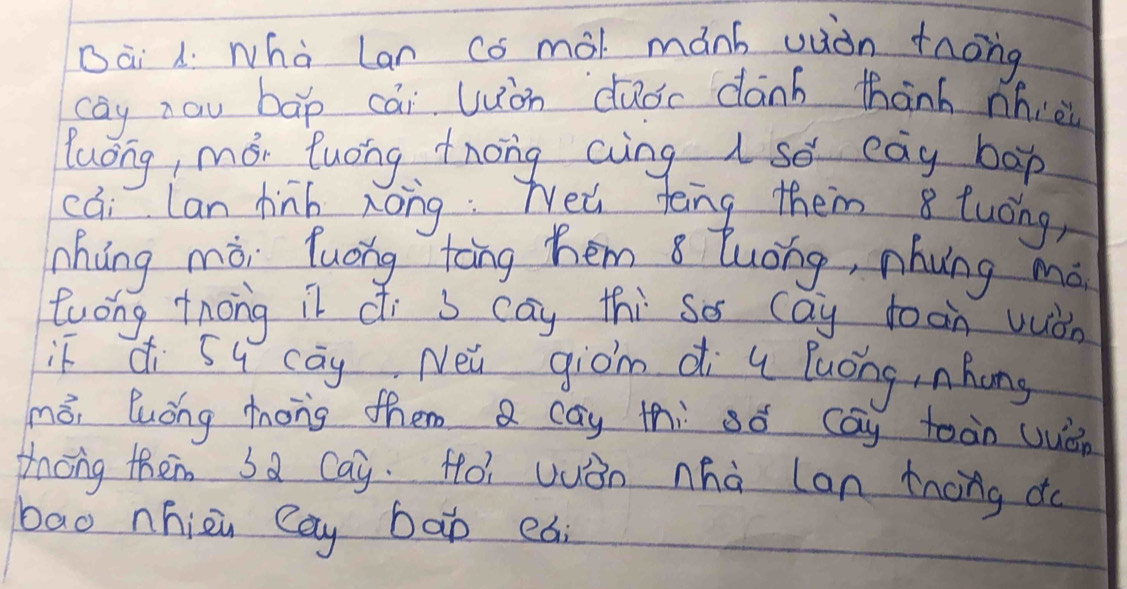 Bài 1: Nhà Lan có một mảnh vườn trồng
cây rau bắp cải. Vườn được đánh thành nhiều
luống, mỗi luống trồng cùng 1 số cây bắp
cải. Lan tính rằng: Nếu tăng thêm 8 luống,
nhưng mỗi luống tăng thêm 8 luống, nhưng mỗi
luống trồng ít đi 3 cây thì số cây toàn vườn
ít đi 54 cây. Nếu giảm đi 4 luống, nhưng
mỗi luống trồng thêm 2 cây thì số cây toàn vườn
trồng thêm 32 cây. Hỏi vườn nhà Lan trồng đc
bao nhiêu cây bắp cải